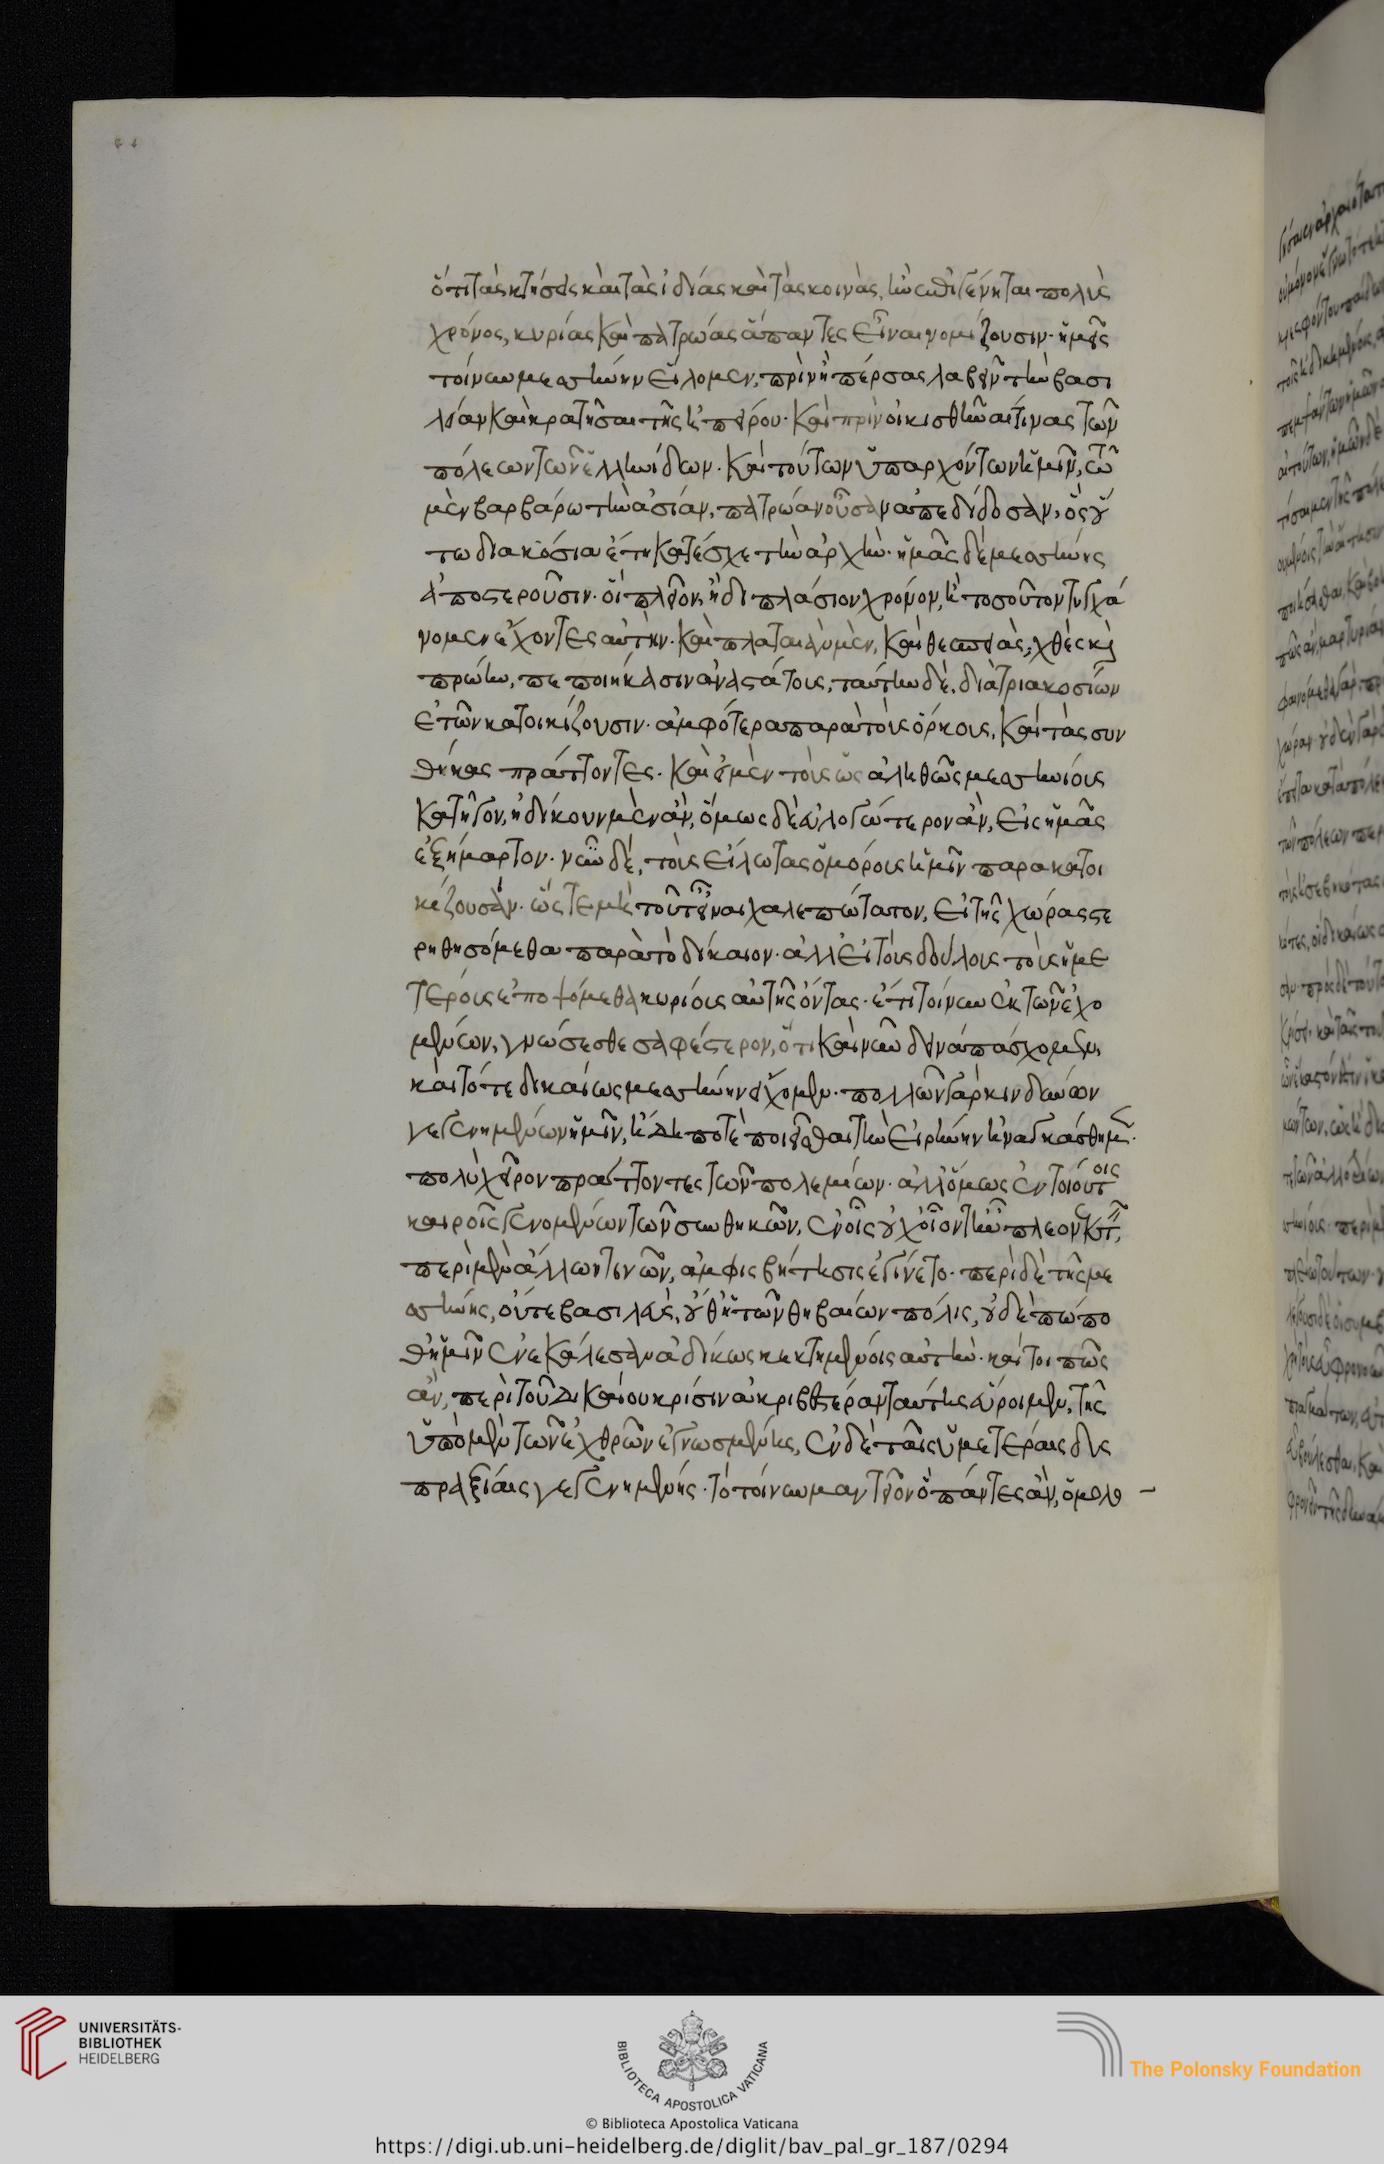 ὅτι τὰς κτήσεις καὶ τὰς ἰδίας καὶ τὰς κοινὰς, ἢν ἐπιγένηται πολὺς
χρόνος, κυρίας καὶ πατρώας ἅπαντες εἶναι νομίζουσιν· ἡμεῖς
τοίνυν μεσήνην εἵλομεν, πρὶν ἢ πέρσας λαβεῖν τὴν βασι
λείαν καὶ κρατῆσαι τῆς ἠπείρου· καὶ πρὶν οἰκισθῆναι τινας τῶν
πόλεων τῶν ἑλληνίδων· καὶ τούτων ὑπαρχόντων ἡμῖν, τῶ
μὲν βαρβάρω τὴν ἀσίαν, πατρώαν οὖσαν ἀπεδίδοσαν, ὃς οὔ
πω διακόσια ἔτη κατέσχε τὴν ἀρχήν· ἡμᾶς δὲ μεσήνης
ἀποστεροῦσιν· οἳ πλεῖον, ἢ διπλάσιον χρόνον, ἢ τοσοῦτον τυγχά
νομεν ἔχοντες αὐτήν· καὶ πλαταιὰς μὲν, καὶ θεσπιὰς, χθὲς καὶ
πρώην, πεποιήκασιν ἀναστάτους, ταύτην δὲ, διὰ τριακοσίων
ἐτῶν κατοικίζουσιν· ἀμφότερα παρὰ τοὺς ὅρκους, καὶ τὰς συν
θήκας πράττοντες· καὶ εἰ μὲν τοὺς ὡς ἀληθῶς μεσηνίους
κατῆγον, ἠδίκουν μὲν ἂν, ὅμως δὲ εὐλογώτερον ἂν, εἰς ἡμᾶς
ἐξήμαρτον· νῦν δὲ, τοὺς εἵλωτας ὁμόρους ἡμῖν παρακατοι
κίζουσιν· ὥστε μὴ τοῦτ' εἶναι χαλεπώτατον, εἰ τῆς χώρας στε
ρηθησόμεθα παρὰ τὸ δίκαιον· ἀλλ' εἰ τοὺς δούλους τοὺς ἡμε
τέρους ἐποψόμεθα κυρίους αὐτῆς ὄντας· ἔτι τοίνυν ἐκ τῶν ἐχο
μένων, γνώσεσθε σαφέστερον, ὅτι καὶ νῦν δεινὰ πάσχομεν,
καὶ τότε δικαίως μεσήνην εἴχομεν· πολλῶν γὰρ κινδύνων
γεγενημένων ἡμῖν, ἤδη ποτὲ ποιεῖσθαι τὴν εἰρήνην ἠναγκάσθημεν·
πολὺ χεῖρον πράττοντες τῶν πολεμίων· ἀλλ' ὅμως ἐν τοιούτοις
καιροῖς γενομένων τῶν συνθηκῶν, ἐν οἷς οὐχ οἷόν τ' ἦν πλεονεκτεῖν,
περὶ μὲν ἄλλων τινῶν, ἀμφισβήτησις ἐγίνετο· περὶ δὲ τῆς με
σήνης, οὔτε βασιλεὺς, οὔθ' ἡ τῶν θηβαίων πόλις, οὐδὲ πώπο
θ' ἡμῖν ἐνεκάλεσαν ἀδίκως κεκτημένοις αὐτήν· καίτοι πῶς
ἂν, περὶ τοῦ δικαίου κρίσιν ἀκριβεστέραν ταύτης εὕροιμεν, τῆς
ὑπὸ μὲν τῶν ἐχθρῶν ἐγνωσμένης, ἐν δὲ ταῖς ἡμετέραις δυς
πραξίαις γεγενημένης· τὸ τοίνυν μαντεῖον ὃ πάντες ἂν, ὁμολο
UNIVERSITÄTS-
BIBLIOTHEK
HEIDELBERG
BIBLIOTECA APOSTOLICA VATICANA
The Polonsky Foundation
© Biblioteca Apostolica Vaticana
https://digi.ub.uni-heidelberg.de/diglit/bav_pal_gr_187/0294